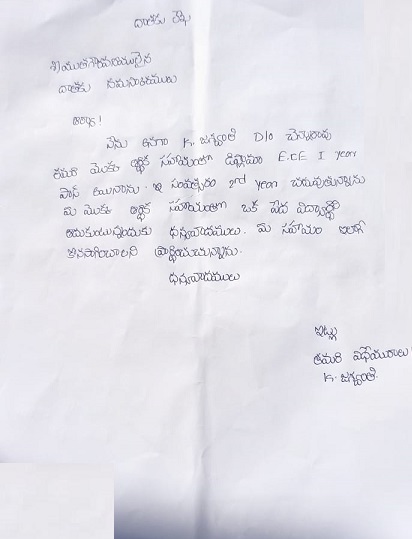 దాతకు లేఖ
శ్రీయుతగౌరవరములైన
దాతకు నమస్కారములు
ఆర్యా!
నేను అనగా K. జగ్వంతి D/o చెన్నారావు
తమరి మొక్క ఆర్థిక సహాయంతో డిప్లొమా E.C.E I year
పాస్ అయినాను. ఈ సంవత్సరం 2nd year చదువుతున్నాను
మీ మొక్క ఆర్థిక సహాయంతో ఒక పేద విద్యార్థిని
ఆదుకుంటున్నందుకు ధన్యవాదములు. మీ సహాయం ఇలాగే
కొనసాగించాలని ప్రార్థించుచున్నాను.
ధన్యవాదములు
ఇట్లు
తమరి విధేయురాలు
K. జగ్వంతి.